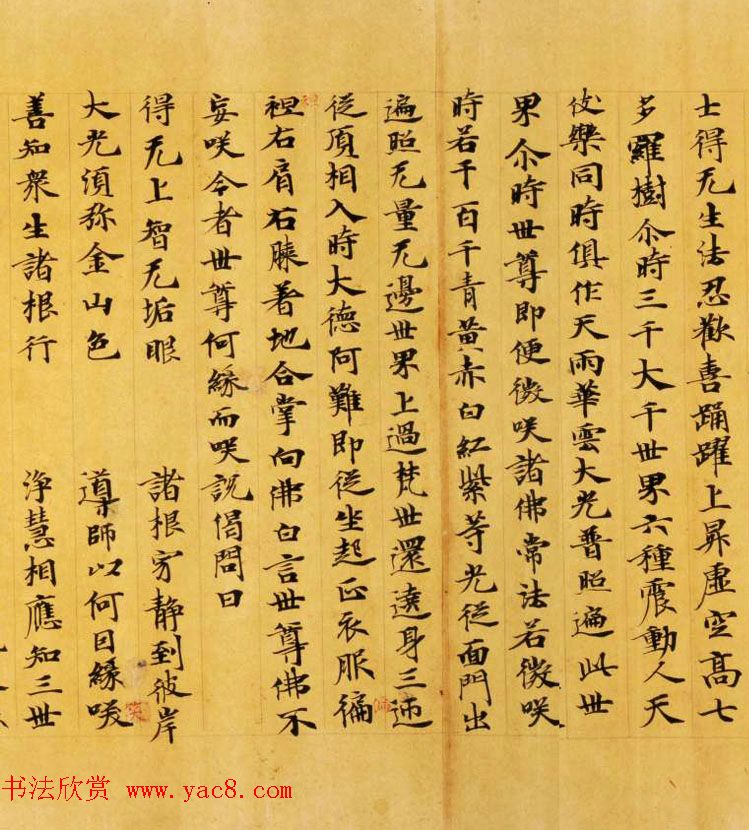 士得无生法忍歡喜踊躍上昇虛空高七
多羅樹尒時三千大千世界六種震動人天
伎樂同時俱作天雨華雲大光普照遍此世
界尒時世尊即便微咲諸佛常法若微咲
時若干百千青黃赤白紅紫等光從面門出
遍照无量无邊世界上過梵世還遶身三迊
從頂相入時大德阿難即從坐起正衣服徧
袒右肩右膝著地合掌向佛白言世尊佛不
妄咲今者世尊何緣而咲說偈問曰
得无上智无垢眼 諸根穷静到彼岸
大光須弥金山色 導師以何因緣咲
善知衆生諸根行 淨慧相應知三世
袒
師
笑
书法欣赏 www.yac8.com